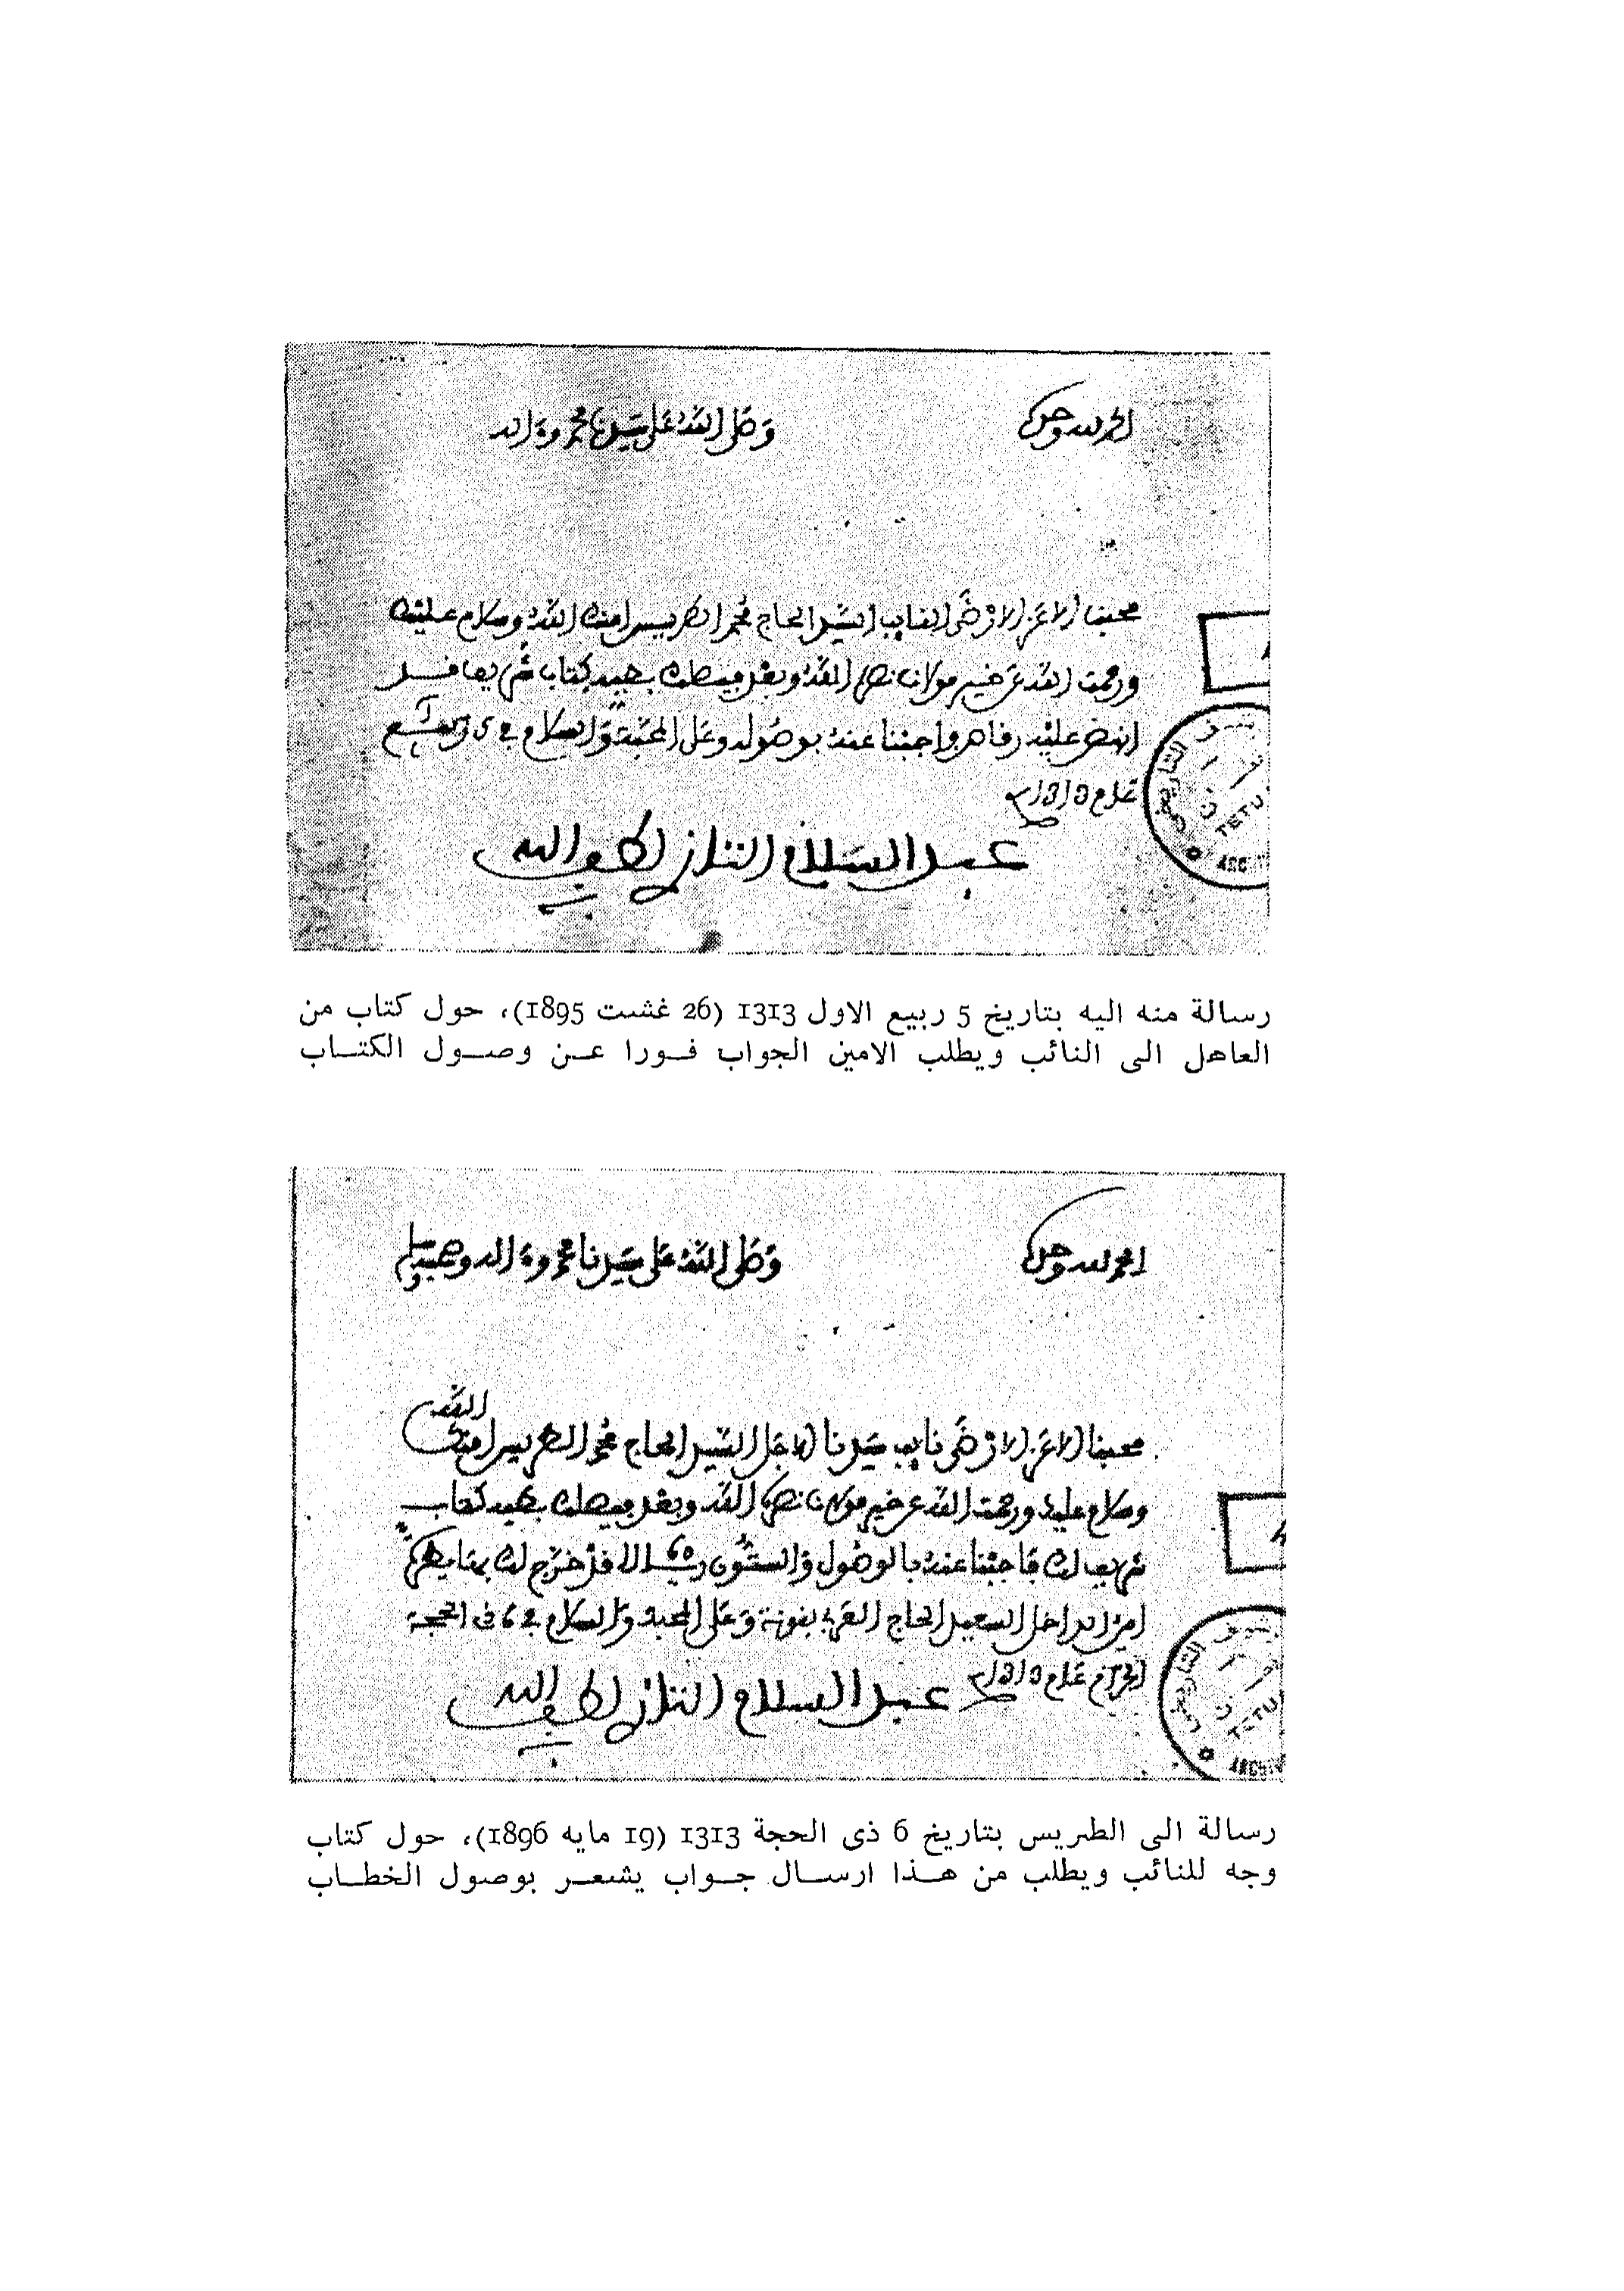 الحمد لله وحده
وصلى الله على سيدنا محمد وءاله
محبنا الاعز الارضى النايب السيد الحاج محمد الطريس امنك الله وسلام عليك
ورحمت الله عن خير مولانا نصره الله وبعد فيصلك طيه كتاب شريف
عليه واجبنا عنه بوصوله وعلى المحبة والسلام في 5 ربيع
عام 1313
عبد السلام التازي لطف الله
به
رسالة منه اليه بتاريخ 5 ربيع الاول 1313 (26 غشت 1895)، حول كتاب من
العاهل الى النائب ويطلب الامين الجواب فـورا عـن وصـول الكتـاب
الحمد لله وحده
وصلى الله على سيدنا محمد وءاله وصحبه وسلم
محبنا الاعز الارضى نايب سيدنا الاجل السيد الحاج محمد الطريس امنك الله
وسلام عليك ورحمت الله عن خير مولانا نصره الله وبعد فيصلك طيه كتاب
شريف لك فاجبنا عنه بالوصول والستون ريالا
الحاج وعلى المحبة والسلام في 6 ذي الحجة
الحرام عام 1313
عبد السلام التازي لطف الله
به
رسالة الى الطريس بتاريخ 6 ذى الحجة 1313 (19 مايه 1896)، حول كتاب
وجه للنائب ويطلب من هـذا ارسـال جـواب يشعـر بوصول الخطـاب